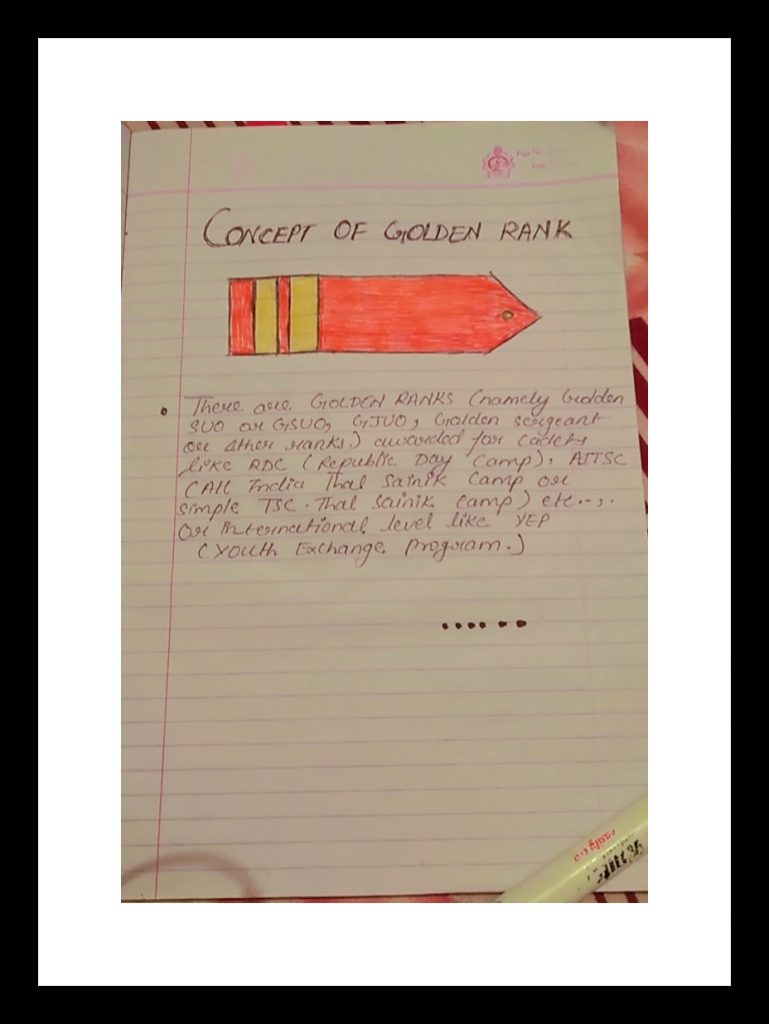 Page No.
Date
CONCEPT OF GOLDEN RANK
There are GOLDEN RANKS (namely Golden
SUO or GSUO, GJUO, Golden sergeant
or other ranks) awarded for cadets
like RDC (Republic Day Camp), AITSC
(All India Thal Sainik Camp or
simple TSC. Thal Sainik Camp) etc..,.
Or International level like YEP
(Youth Exchange Program.)